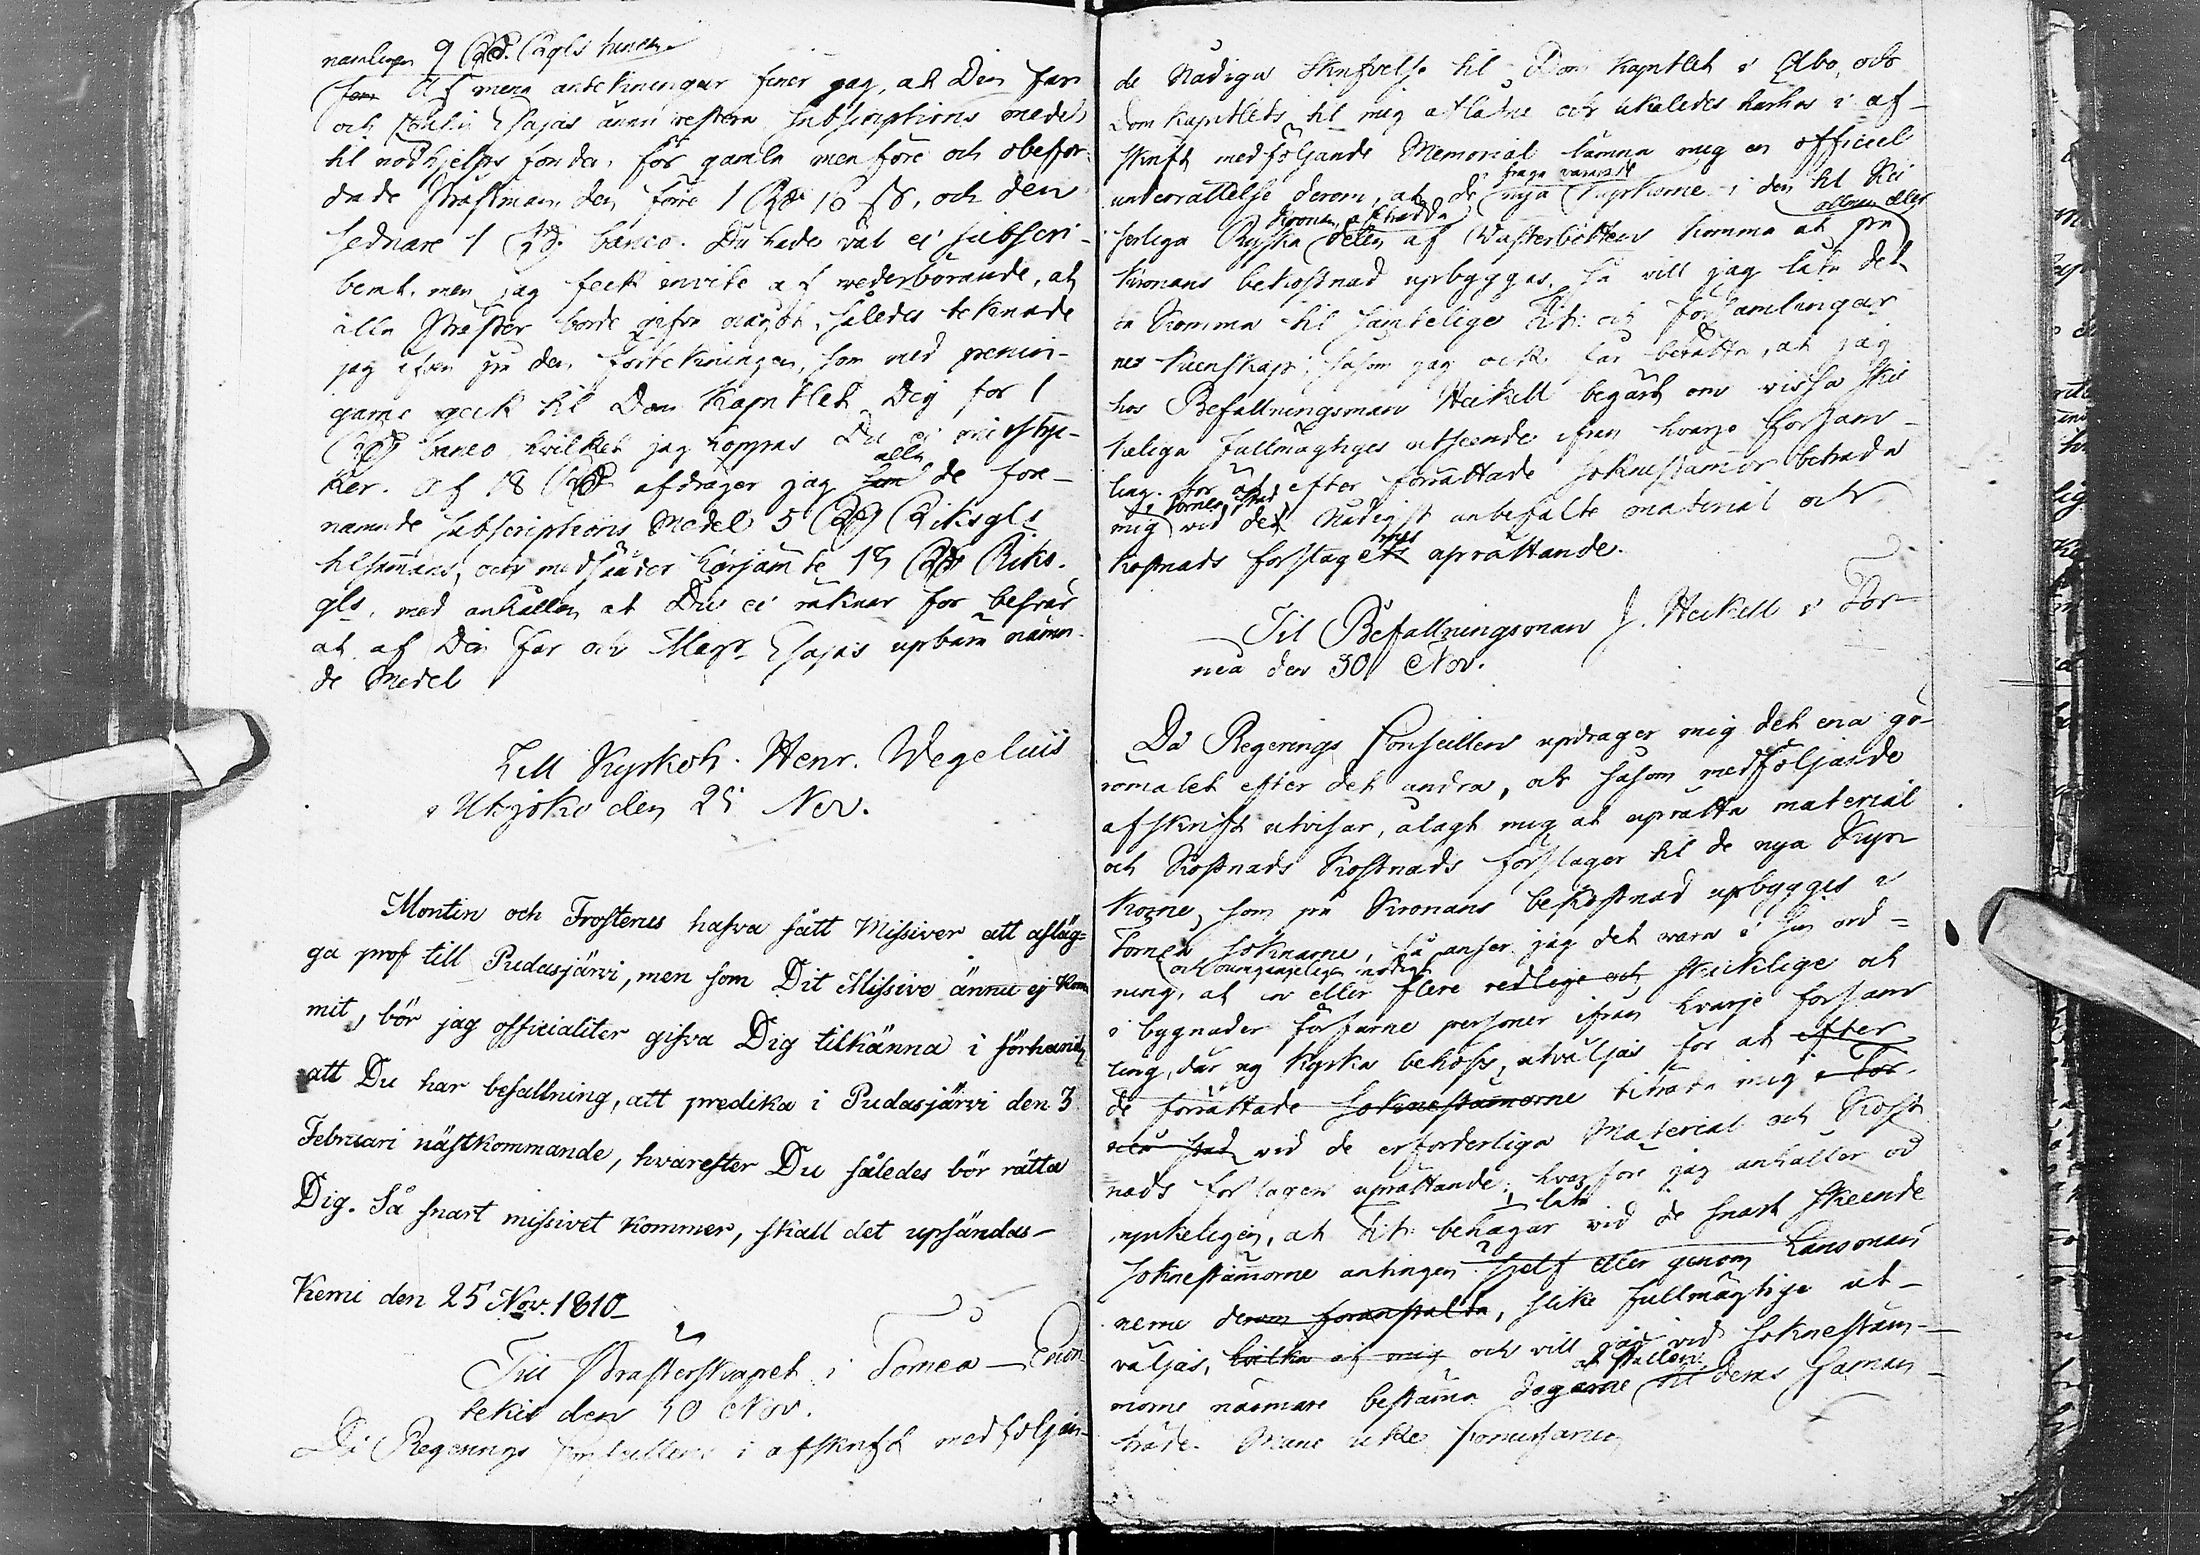 nämligen 9 Rd. Rgls
Af mina antekningar finer jag, at Din far
och Cousin Esajas ännu restera subscriptions medel
til nödhjelps fonden för gamla men före och obefor-
drade Prästmän, den förre 1 Rd 16 s, och den
sednare 1 Rd. banco. Du hade väl ej subscri-
berat, men jag feck invite af vederbörande, at
alla Präster borde gifva något, således teknade
jag äfven på den förtekningen, som med pennin-
garne geck til Dom Kapitlet Dig för 1
Rd banco, hvilket jag hoppas Du ej misstyc-
ker. Af 18 Rd afdrager jag alla de före-
namnde subscriptions Medel 5 Rd Riksgls
tilsammans, och medsänder härjämte 13 Rd Riks-
gls. med anhållan at Du ei räknar för besvär
at af Din far och Magr Esajas upbära nämn-
de Medel
Till Kyrkoh. Henr. Wegelius
i Utsjoki den 25 Nov.
Montin och Frosterus hafva fått Missiver att afläg-
ga prof till Pudasjärvi, men som Dit Missive ännu ej kom-
mit, bör jag officialiter gifva Dig tilkänna i förhand,
att Du har befallning, att predika i Pudasjärvi den 3
Februari nästkommande, hvarefter Du således bör rätta
Dig. Så snart missivet kommer, skall det upsändas-
Kemi den 25 Nov. 1810-
Till Prästerskapet i Torneå-Enon-
tekis den 30 Nov.
Då Regerings Conseillens i afskrift medföljan-
de Nådiga Skrifvelse til Dom Kapitlet i Åbo, och
Dom Kapitlets til mig aflåtne och likaledes härhos i af-
skrift medföljande Memorial lämna mig en officiel
fråga varande
underrättelse derom, at de nya Kyrkorne i den til Kei
Kronan afträdda allmän eller
serliga Ryska delen af Westerbotten komma at på
Kronans bekostnad upbyggas, så vill jag låta det-
ta komma til samtelige Tit: och församlingar-
nes kunskap; såsom jag ock får berätta, at jag
hos Befallningsman Heikell begärt om vissa skic-
keliga fullmägtiges utseende ifrån hvarje försam-
ling, för at efter förrättade Soknestämmor biträda
i Torneå stad
mig vid det Nådigst anbefalte material och
kostnads förslagets uprättande.
Til Befallningsman J. Heikell i Tor-
neå den 30 Nov.
Då Regerings Conseillen updrager mig det ena gö-
romålet efter det andra, och såsom medföljande
afskrift utvisar, ålagt mig at uprätta material
och Kostnads Kostnads förslager til de nya Kyr-
korne, som på Kronans bekostnad upbygges i
Torneå soknarne, så anser jag det vara i sin ord-
och oumgängeligen nödigt
ning, at en eller flere redlige och skicklige och
i bygnader förfarne personer ifrån hvarje försam
ling, där ny Kyrka behöfs, utväljas för at efter
de förrättade Soknestämmorne biträda mig i Tor-
neå stad vid de erforderliga Material och Kost-
nads förslagen uprättande; hvarföre jag anhåller öd-
låta
mjukeligen, at Tit: behagar vid de snart skeende
Soknestämmorne antingen sjelf eller genom Länsmän
nerne derom föranstalta, slike fullmägtige ut-
väljas, hvilka af mig och vill jag vid Soknestäm-
at stället
morne närmare bestämma dagarne til deras samman-
träde.